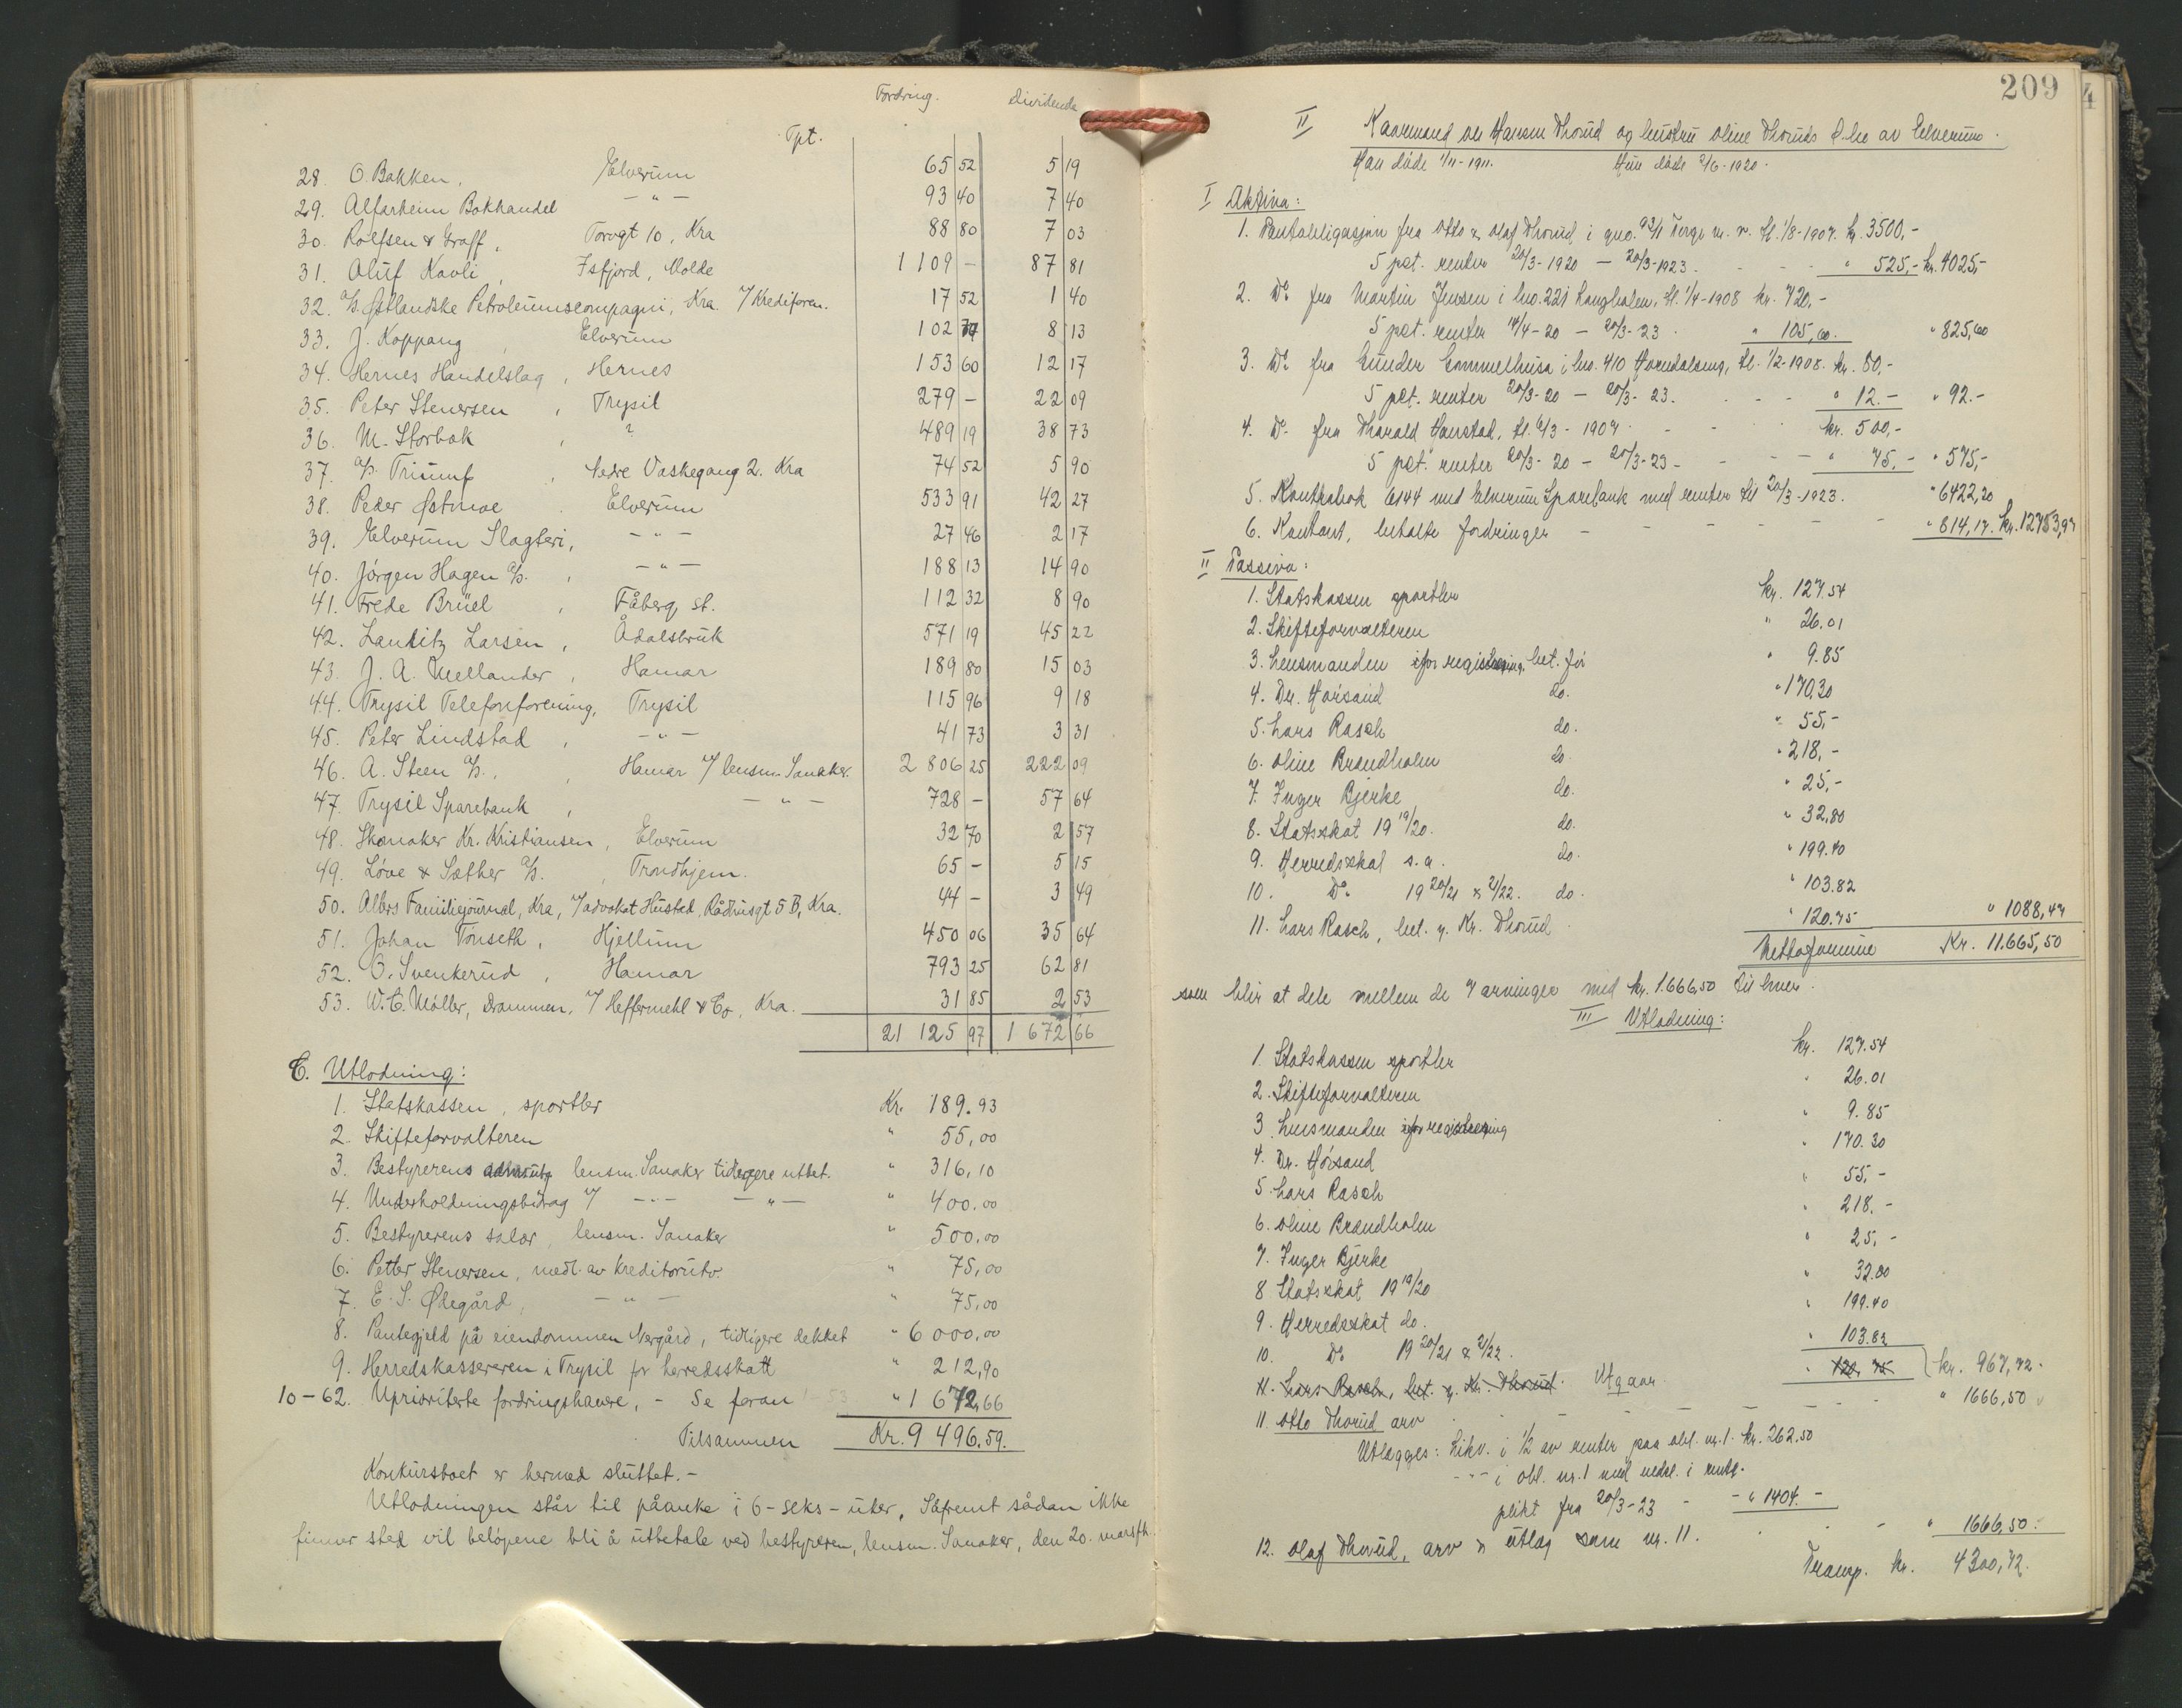 Fordring. Dividende
Tpt.
28. O. Bakken, Elverum 65 52 5 19
29. Alfarheim Bokhandel — " — 93 40 7 40
30. Rolfsen & Graff, Torvgt 10, Kra 88 80 7 03
31. Oluf Kavli, Isfjord, Molde 1 109 - 87 81
32. A/S. Østlandske Petroleumscompagni, Kra. v/ Krediforen. 17 52 1 40
33. J. Koppang, Elverum 102 77 8 13
34. Hernes Handelslag, Hernes 153 60 12 17
35. Peter Stenersen, Trysil 279 - 22 09
36. M. Storbak, ? 489 19 38 73
37. A/S. Triumf, Nedre Vaskegang 2. Kra 74 52 5 90
38. Peder Østmoe. Elverum 533 91 42 27
39. Elverum Slagteri, - " - 27 46 2 17
40. Jörgen Hagen A/S., - " - 188 13 14 90
41. Frede Brüel, Fåberg st. 112 32 8 90
42. Lauritz Larsen, Ådalsbruk 571 19 45 22
43. J. A. Mellander, Hamar 189 80 15 03
44. Trysil Telefonforening, Trysil 115 96 9 18
45. Peter Lindstad, - " - 41 73 3 31
46. A. Steen A/S., Hamar v/ lensm. Sanaker. 2 806 25 222 09
47. Trysil Sparebank, — " — 728 - 57 64
48. Skomaker Kr. Kristiansen, Elverum 32 70 2 57
49. Löve & Sæther A/S., Trondhjem. 65 - 5 15
50. Allers Familiejournal, Kra, v/ advokat Hustad, Rådhusgt 5 B, Kra. 44 - 3 49
51. Johan Tönseth, Hjellum 450 06 35 64
52. O. Svenkerud, Hamar 793 25 62 81
53. W. C. Möller, Drammen, v/ Heffermehl & Co, Kra. 31 85 2 53
21 125 97 1 672 66
C. Utlodning:
1. Statskassen, sportler Kr. 189.93
2. Skifteforvalteren " 55,00
3. Bestyrerens lensm. Sanaker tidligere utbet. " 316,10
4. Underholdningsbidrag v/ - " - - " - " 400.00
5. Bestyrerens salær, lensm. Sanaker " 500,00
6. Petter Stenersen, medl. av kreditorutv. " 75,00
7. E. S. Ödegård, - " - " 75,00
8. Pantegjeld på eiendommen Nergård, tidligere dekket " 6 000,00
9. Herredskassereren i Trysil for herredsskatt " 212,90
10-62. Upriviterte fordringshavere, - Se foran 1-53 " 1 672,66
Tilsammen Kr. 9 496.59.
Konkursboet er hermed sluttet.-
Utlodningen står til påanke i 6-seks-uker. Såfremt sådan ikke
finner sted vil belöpene bli å utbetale ved bestyreren, lensm. Sanaker, den 20. mars fh.
209
4
II Kaarmand Hansen Thorud og hustru Oline Thoruds d.bo av Elverum.
Han döde 1/11-1911. Hun döde 2/6-1920.
I Aktiva:
1. Pantobligasjon fra Otto & Olaf Thorud i gno. m. v. tl. 1/8-1907. kr. 3500,-
5 pct. renter 20/3-1920 - 20/3-1923. " 525,- kr. 4025,-
2. Do fra Martin Jensen i lno. 221 Langholen, tl. 1/4-1908 kr. 720,-
5 pct. renter 14/4-20 - 20/3-23 " 105,60. " 825,60
3. Do fra Gunder Gammelhusa i lno. 410 tl. 1/2-1908. kr. 80,-
5 pct. renter 20/3-20 - 20/3-23. " 12.- " 92.-
4. Do fra Tharald Hanstad, tl. 6/3-1907. kr. 500,-
5 pct. renter 20/3-20 - 20/3-23- " 75,- " 575,-
5. Kontrabok 6144 med Elverum Sparebank med renter til 20/3-1923. " 6422,20
6. Kontant, betalte fordringer - " 814,17. kr. 12753,97
II Passiva:
1. Statskassen sportler kr. 127.54
2. Skifteforvalteren " 26.01
3. Lensmanden for registrering bet. før " 9.85
4. Dr. Hörsand do. " 170.30
5. Lars Rasch do. " 55,-
6. Oline Brændholm do. " 218,-
7. Inger Bjerke do. " 25,-
8. Statsskat 19 19/20. do. " 32,80
9. Herredsskat s.a. do. " 199.40
10. Do 19 20/21 & 21/22. do. " 103.82
11. Lars Rasch, bet. g. Kr. Thorud " 120.75 " 1088,47
Nettoformue Kr. 11.665,50
som blir at dele mellem de 7 arvinger med kr. 1.666,50 til hver.
III Utlodning:
1. Statskassen sportler kr. 127.54
2. Skifteforvalteren " 26.01
3. Lensmanden for registrering " 9.85
4. Dr. Hörsand " 170.30
5. Lars Rasch " 55,-
6. Oline Brændholm " 218.-
7. Inger Bjerke " 25,-
8 Statsskat 19 19/20 " 32.80
9. Herredsskat do. " 199.40
10. Do 19 20/21 & 21/22. " 103.82
11. Lars Rasch, bet. g. Kr. Thorud. Utgaar. " 120,75 kr. 967,72.
11. Otto Thorud arv " 1666,50
Utlægges: Likv. i 1/2 av renter paa obl. nr. 1. kr. 262.50
-"- i obl. nr. 1 med nedsl. i rente-
plikt fra 20/3-23 - - " 1404.-
12. Olaf Thorud, arv & utlæg som nr. 11. " 1666,50.
Transp. kr. 4300,72.